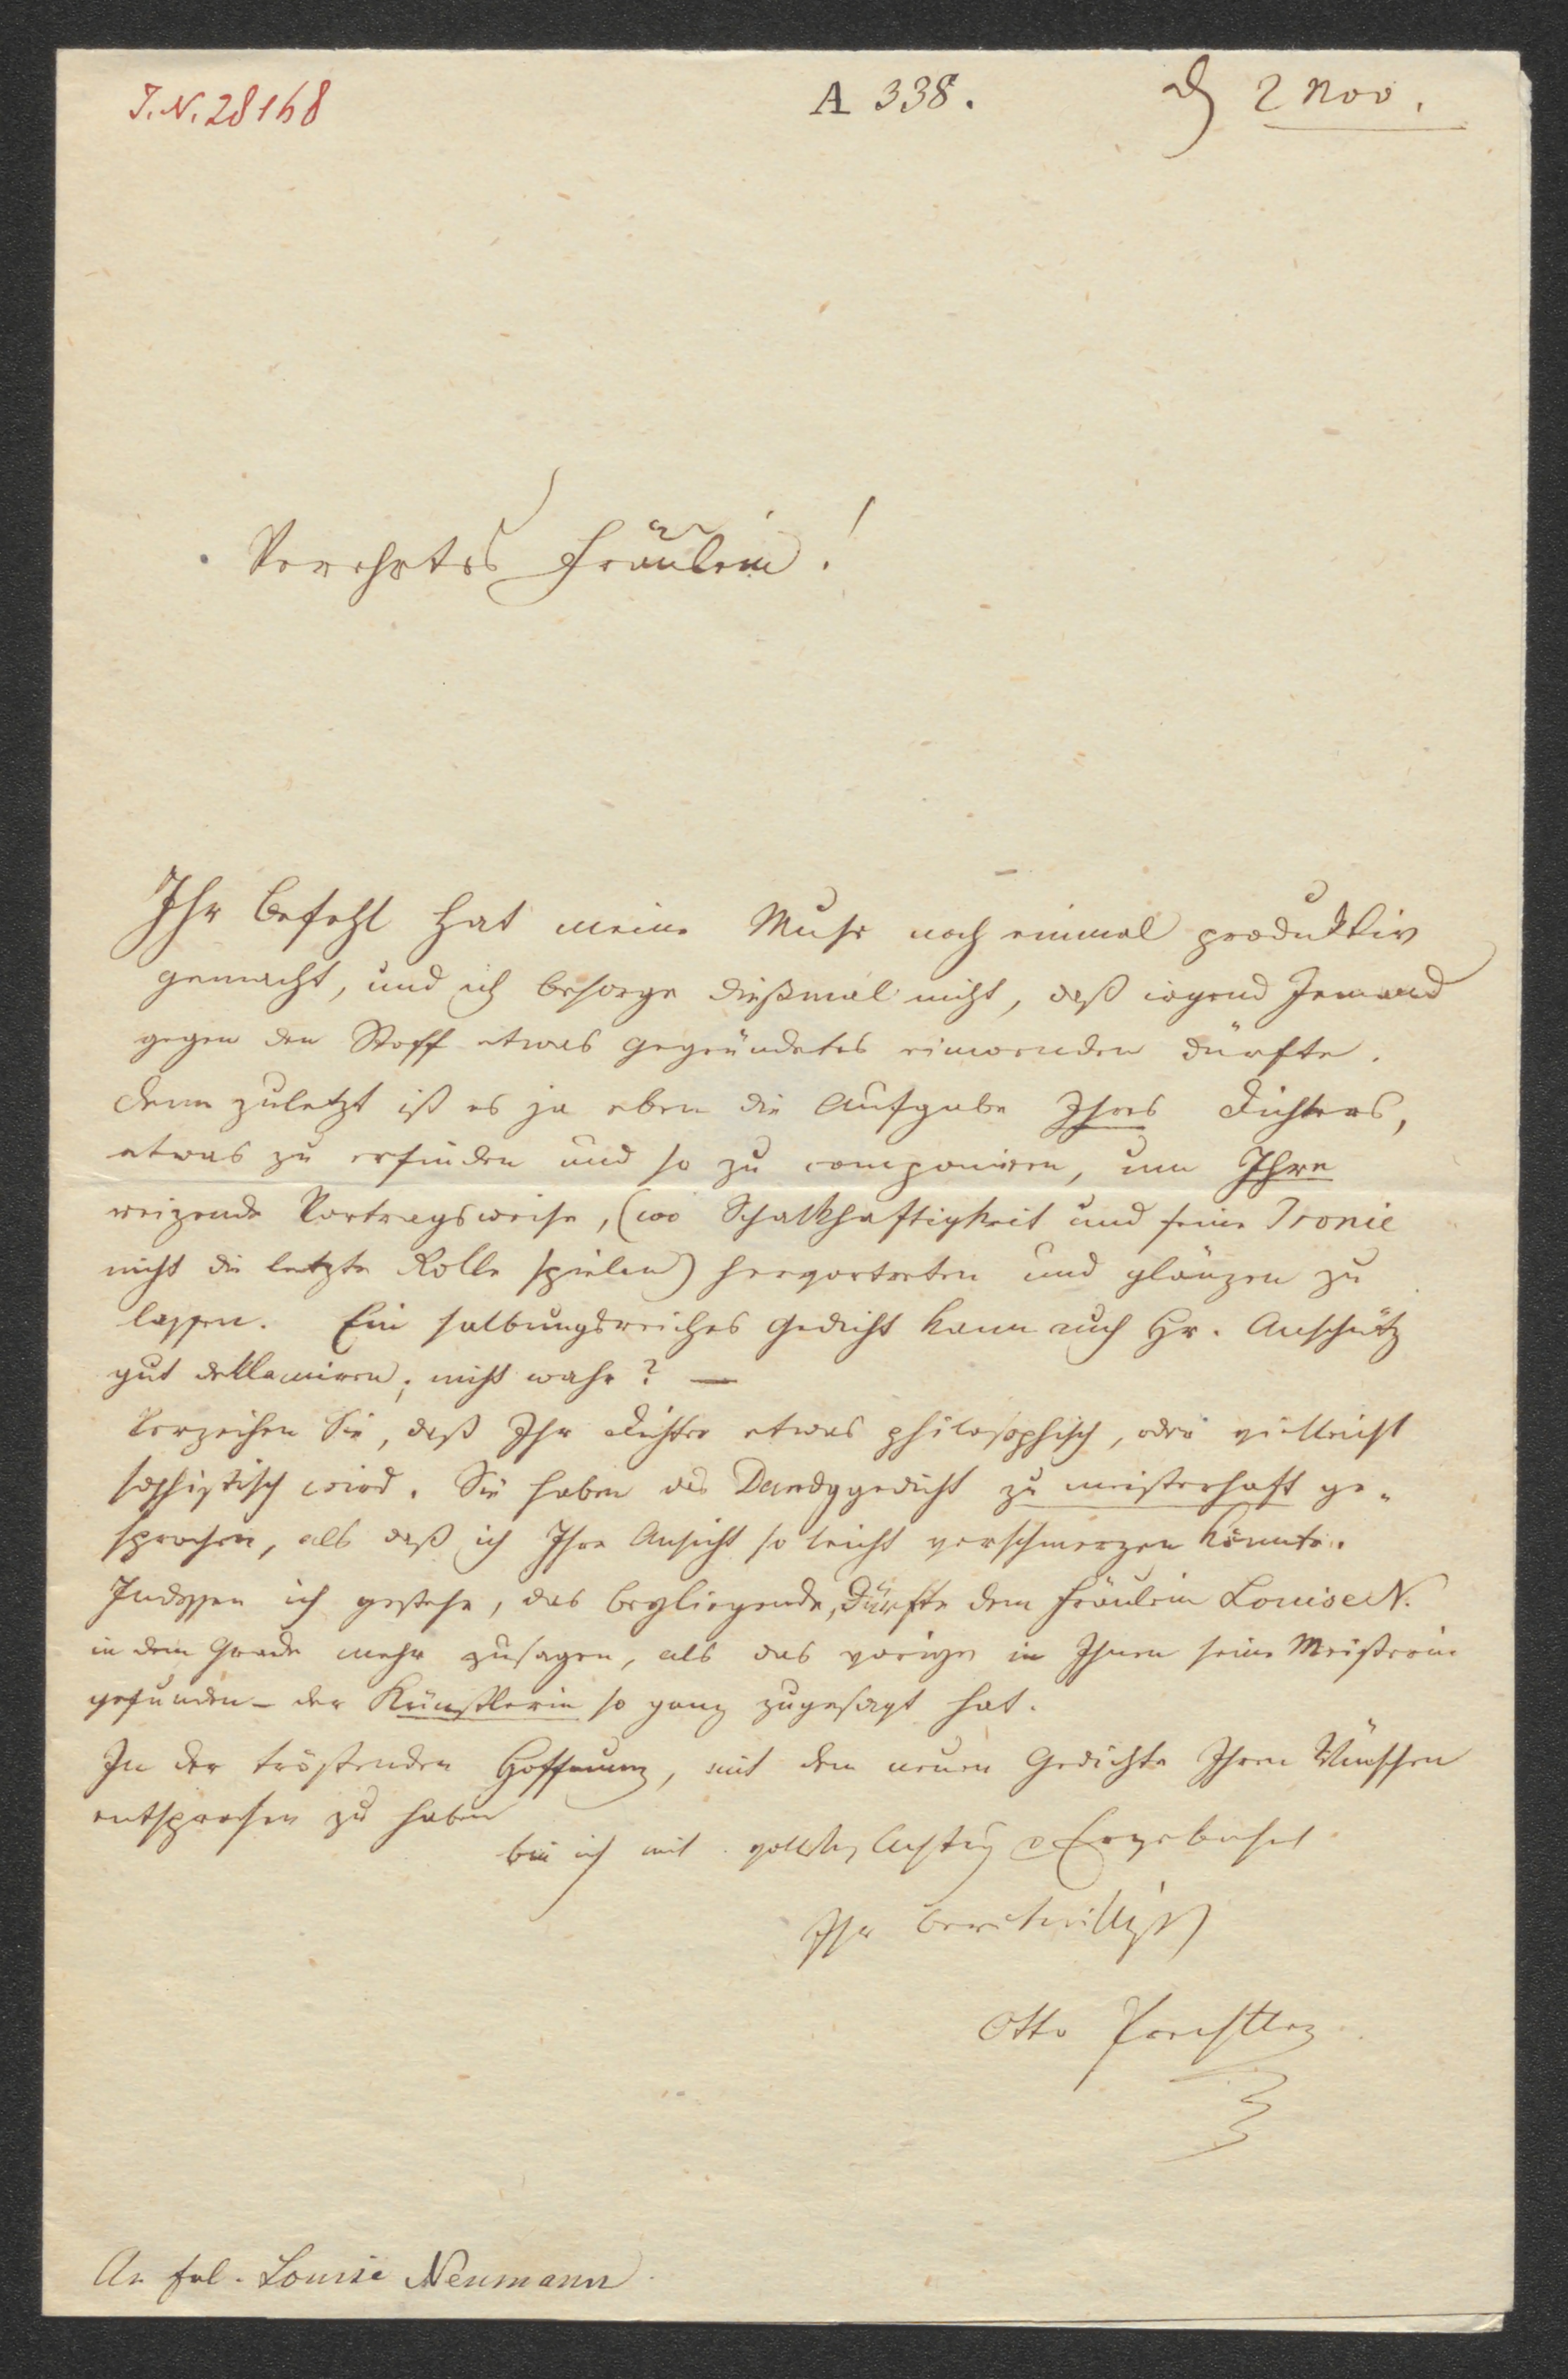 I.N. 28168
A 338.
d 2 Nov.
Verehrtes Fräulein!
Ihr Befehl hat meine Muse noch einmal produktiv
gemacht, und ich besorge dießmal nicht, daß irgend Jemand
gegen den Stoff etwas gegründetes einwenden dürfte.
Denn zuletzt ist es ja eben die Aufgabe Ihres Dichters,
etwas zu erfinden und so zu componiren, um Ihre
reizende Vortragsweise, (wo Schalkhaftigkeit und feine Ironie
nicht die letzte Rolle spielen) hervortreten und glänzen zu
lassen. Ein salbungsreiches Gedicht kann auch Hr. Anschütz
gut deklamiren; nicht wahr? —
Verzeihen Sie, daß Ihr Dichter etwas philosophisch, oder vielleicht
sophistisch wird. Sie haben das Dandygedicht zu meisterhaft ge-
sprochen, als daß ich Ihre Ansicht so leicht verschmerzen könnte.
Indessen ich gestehe, das beyliegende, dürfte dem Fräulein Louise N.
in dem Grade mehr zusagen, als das vorige in Ihnen seine Meisterin
gefunden – der Künstlerin so ganz zugesagt hat.
In der tröstenden Hoffnung, mit dem neuen Gedichte Ihren Wünschen
entsprochen zu haben
bin ich mit Achtung Ergebenheit
Ihr bereitwilligst
Otto Prechtler
An Frl. Louise Neumann.